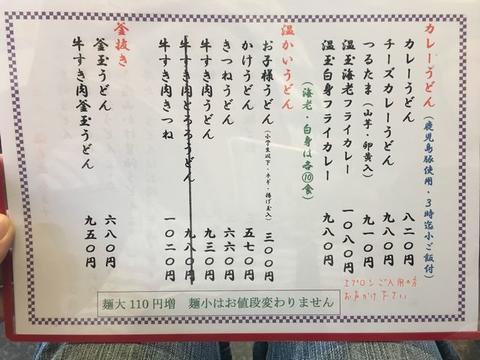 カレーうどん（鹿児島豚使用・３時迄小ご飯付）
カレーうどん　八二〇円
チーズカレーうどん　九八〇円
つるたま（山芋・卵黄入）　九一〇円
温玉海老フライカレー　一〇八〇円
温玉白身フライカレー　九八〇円
（海老・白身は各⑩食）
エプロンご入用の方
お声がけ下さい
温かいうどん
お子様うどん（小学生以下・ネギ・揚げ玉入）　三〇〇円
かけうどん　五七〇円
きつねうどん　六六〇円
牛すき肉うどん　九三〇円
牛すき肉とろろうどん　九八〇円
牛すき肉きつね　一〇二〇円
釜抜き
釜玉うどん　六八〇円
牛すき肉釜玉うどん　九五〇円
麺大110円増　麺小はお値段変わりません